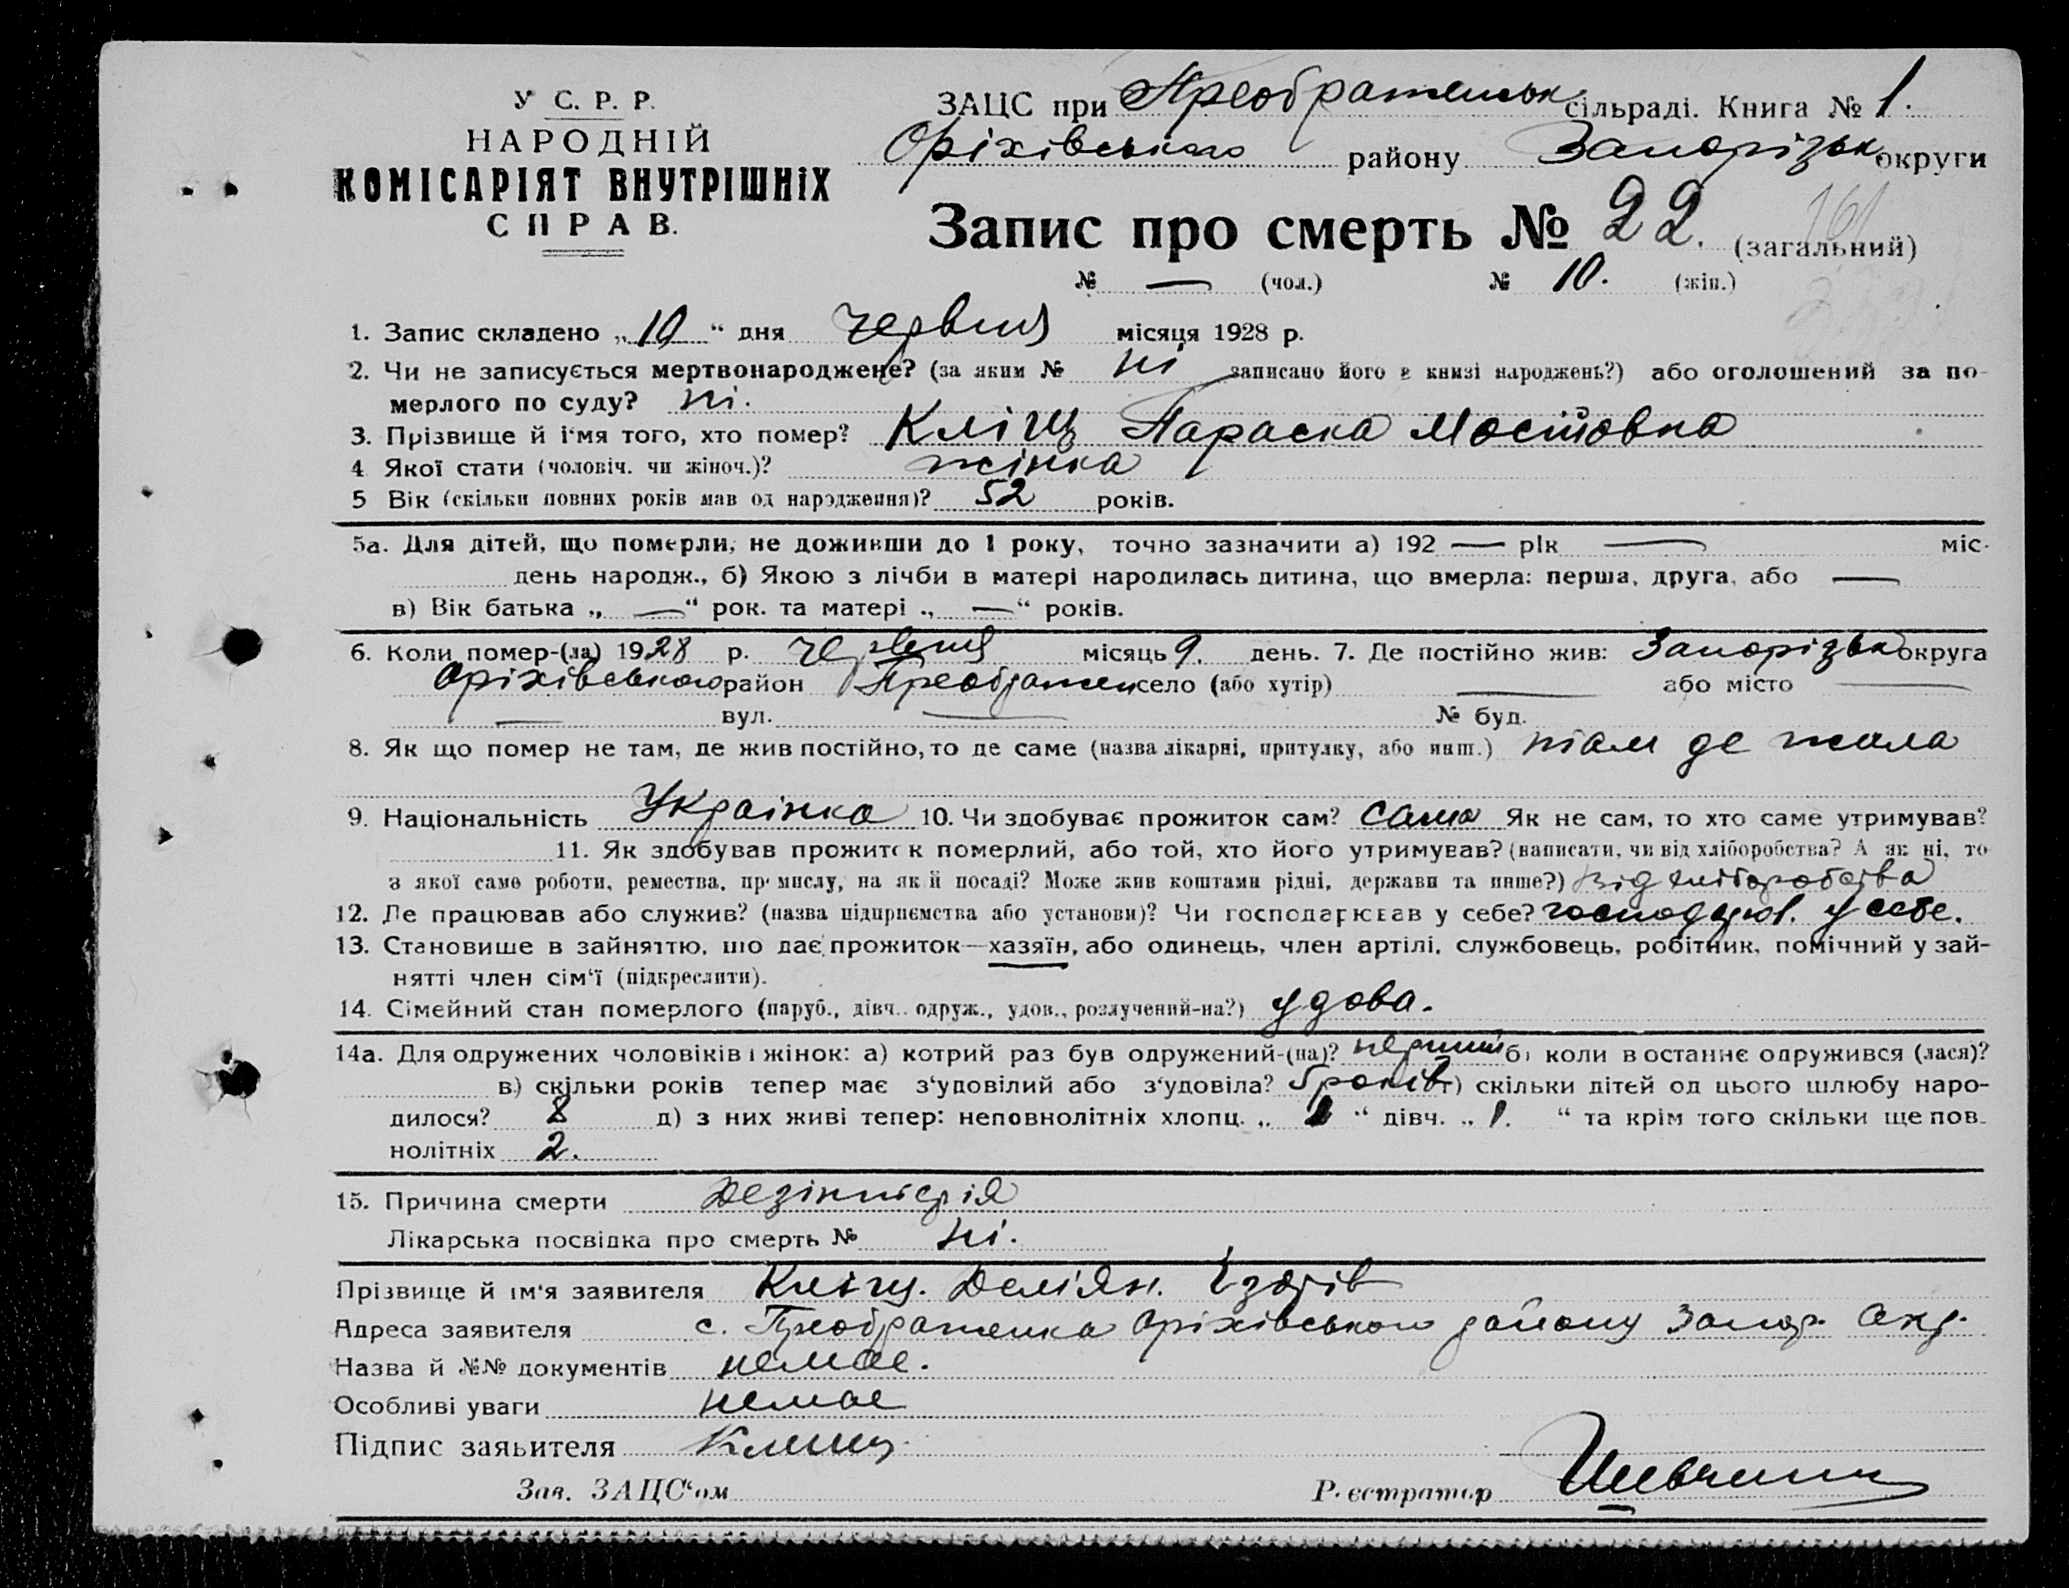 У С. Р. Р.
НАРОДНІЙ
КОМІСАРІЯТ ВНУТРІШНІХ
СПРАВ.
ЗАЦС при Преображенськ сільраді. Книга № 1.
Оріхівського району Запорізьк округи
Запис про смерть № 22. (загальний)
№ — (чол.) № 10. (жін.)
1. Запис складено „10“ дня червня місяця 1928 р.
2. Чи не записується мертвонароджене? (за яким № ні записано його в книзі народжень?) або оголошений за по-
мерлого по суду? ні.
3. Прізвище й і'мя того, хто помер? Кліщ Параска
4 Якої стати (чоловіч. чи жіноч.)? жінка
5 Вік (скільки повних років мав од народження)? 52 років.
5а. Для дітей, що померли, не доживши до 1 року, точно зазначити а) 192 — рік — міс.
день народж., б) Якою з лічби в матері народилась дитина, що вмерла: перша, друга, або —
в) Вік батька „ — “ рок. та матері „ — “ років.
6. Коли помер-(ла) 1928 р. червня місяць 9. день. 7. Де постійно жив: Запорізьк округа
Оріхівського район Преображен село (або хутір) — або місто —
— вул. — № буд.
8. Як що помер не там, де жив постійно, то де саме (назва лікарні, притулку, або инш.) там де жила
9. Національність Українка 10. Чи здобуває прожиток сам? сама Як не сам, то хто саме утримував?
11. Як здобував прожиток померлий, або той, хто його утримував? (написати, чи від хліборобства? А як ні, то
з якої саме роботи, ремества, промислу, на якій посаді? Може жив коштами рідні, держави та инше?) від хліборобства
12. Де працював або служив? (назва підприємства або установи)? Чи господарював у себе? господарюв. у себе.
13. Становище в зайняттю, що дає прожиток—хазяїн, або одинець, член артілі, службовець, робітник, помічний у зай-
нятті член сім'ї (підкреслити).
14. Сімейний стан померлого (паруб., дівч., одруж., удов., розлучений-на?) удова.
14а. Для одружених чоловіків і жінок: а) котрий раз був одружений-(на)? перший б) коли востаннє одружився (лася)?
в) скільки років тепер має з'удовілий або з'удовіла? 5 років г) скільки дітей од цього шлюбу наро-
дилося? 8 д) з них живі тепер: неповнолітніх хлопц. „ “ дівч. „ 1. “ та крім того скільки ще пов-
нолітніх 2.
15. Причина смерти Дезінтерія
Лікарська посвідка про смерть № ні.
Прізвище й ім'я заявителя Кліщ.
Адреса заявителя с. Преображенка Оріхівського району Запор. Окр.
Назва й №№ документів немає.
Особливі уваги немає
Підпис заявителя Клищ
Зав. ЗАЦС'ом Реєстратор